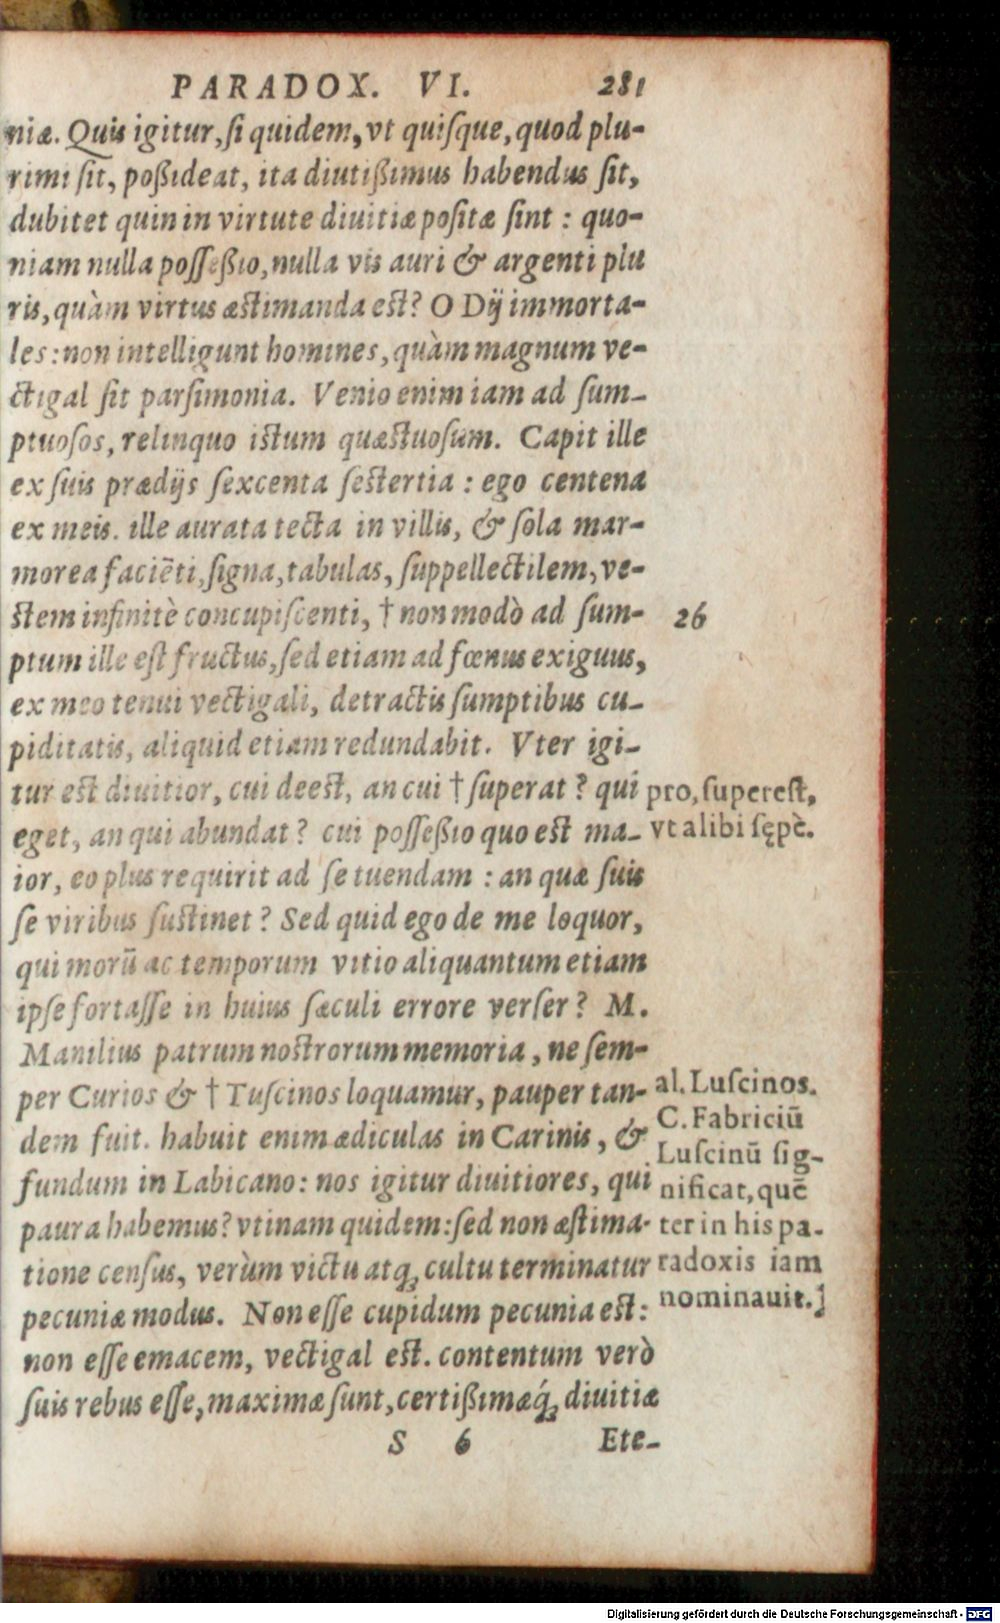 PARADOX. VI. 281
niæ. Quis igitur, si quidem, vt quisque, quod plu-
rimi sit, poßideat, ita diutißimus habendus sit,
dubitet quin in virtute diuitiæ positæ sint : quo-
niam nulla posseßio, nulla vis auri & argenti plu
ris, quàm virtus æstimanda est? O Dij immorta-
les: non intelligunt homines, quàm magnum ve-
ctigal sit parsimonia. Venio enim iam ad sum-
ptuosos, relinquo istum quæstuosum. Capit ille
ex suis prædijs sexcenta sestertia : ego centena
ex meis. ille aurata tecta in villis, & sola mar-
morea faciẽti, signa, tabulas, suppellectilem, ve-
stem infinitè concupiscenti, † non modò ad sum-
26
ptum ille est fructus, sed etiam ad fœnus exiguus,
ex meo tenui vectigali, detractis sumptibus cu-
piditatis, aliquid etiam redundabit. Vter igi-
tur est diuitior, cui deest, an cui † superat ? qui
eget, an qui abundat ? cui posseßio quo est ma-
ior, eo plus requirit ad se tuendam : an quæ suis
se viribus sustinet ? Sed quid ego de me loquor,
qui morũ ac temporum vitio aliquantum etiam
ipse fortasse in huius sæculi errore verser ? M.
Manilius patrum nostrorum memoria, ne sem-
per Curios & † Tuscinos loquamur, pauper tan-
dem fuit. habuit enim ædiculas in Carinis, &
fundum in Labicano: nos igitur diuitiores, qui
paura habemus? vtinam quidem: sed non æstima-
tione census, verùm victu atq; cultu terminatur
pecuniæ modus. Non esse cupidum pecunia est:
non esse emacem, vectigal est. contentum verò
suis rebus esse, maximæ sunt, certißimæq́; diuitiæ
pro, superest,
vt alibi sępè.
al. Luscinos.
C. Fabriciũ
Luscinũ sig-
nificat, quẽ
ter in his pa-
radoxis iam
nominauit.]
S 6 Ete-
Digitalisierung gefördert durch die Deutsche Forschungsgemeinschaft - DFG